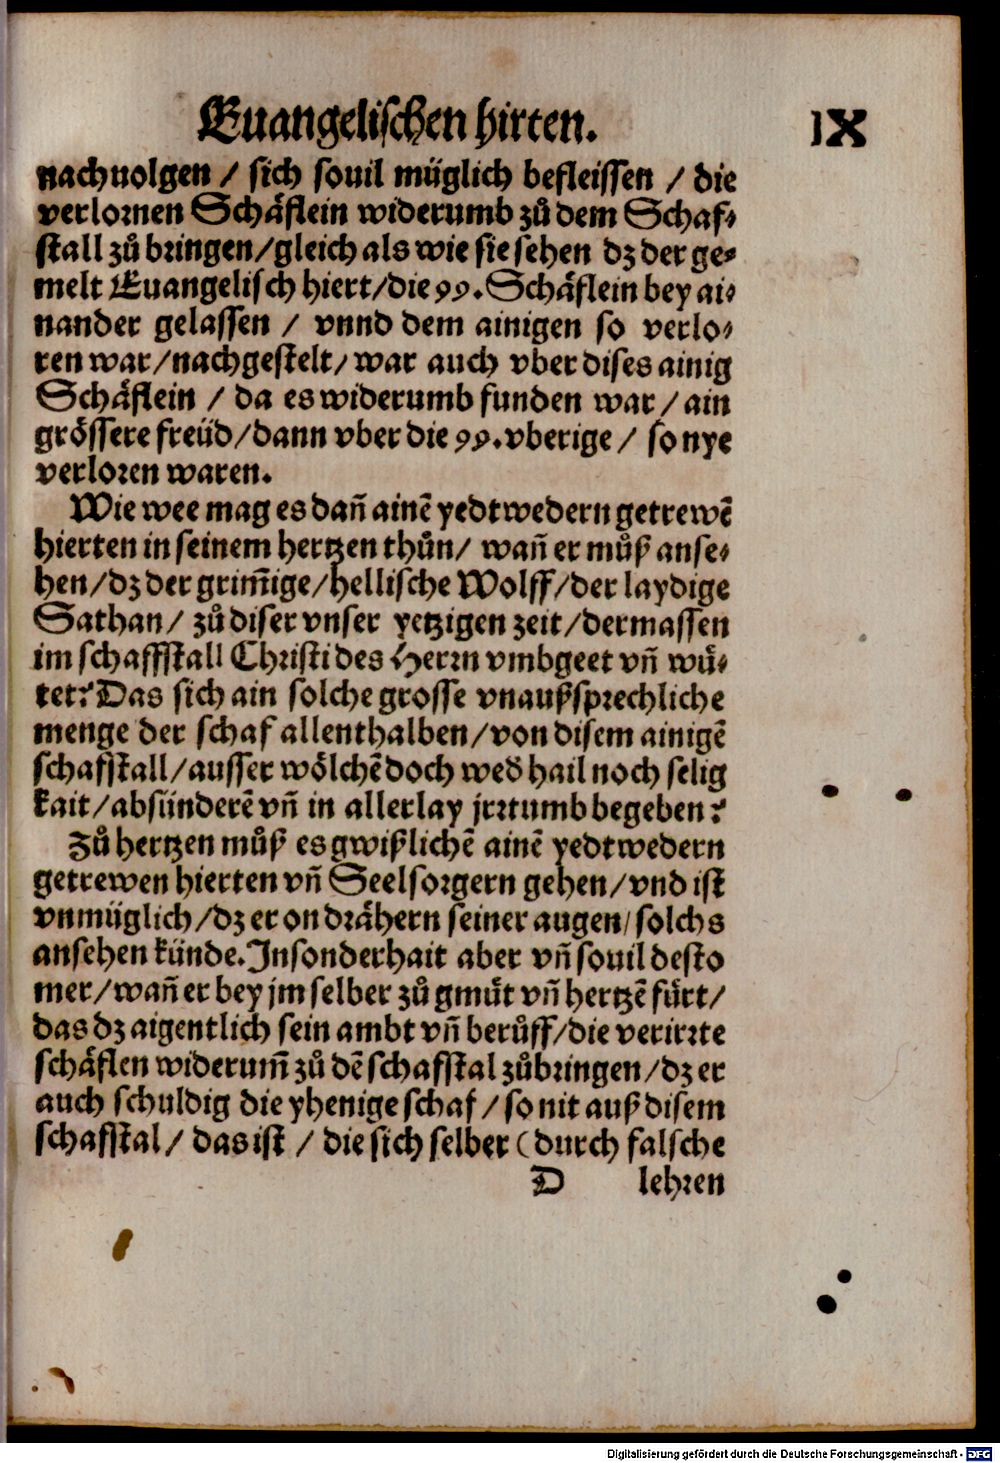 Euangelischen hirten. IX
nachuolgen / sich souil müglich befleissen / die
verlornen Schäflein widerumb zů dem Schaf⸗
stall zů bringen/gleich als wie sie sehen dz der ge⸗
melt Euangelisch hiert/die 99. Schäflein bey ai⸗
nander gelassen / vnnd dem ainigen so verlo⸗
ren war/nachgestelt/war auch vber dises ainig
Schäflein / da es widerumb funden war/ain
grössere freüd/dann vber die 99. vberige / so nye
verloren waren.
Wie wee mag es dañ ainē yedtwedern getrewē
hierten in seinem hertzen thůn/ wañ er můß anse⸗
hen/dz der grim̄ige/hellische Wolff/der laydige
Sathan/ zů diser vnser yetzigen zeit/dermassen
im schaffstall Christi des Herrn vmbgeet vñ wü⸗
tet? Das sich ain solche grosse vnaußsprechliche
menge der schaf allenthalben/von disem ainigē
schafstall/ausser wölchē doch wed hail noch selig
kait/absünderē vñ in allerlay jrrtumb begeben?
Zů hertzen můß es gwißlichē ainē yedtwedern
getrewen hierten vñ Seelsorgern gehen/vnd ist
vnmüglich/dz er on drähern seiner augen/solchs
ansehen künde. Insonderhait aber vñ souil desto
mer/wañ er bey jm selber zů gmüt vñ hertzē fürt/
das dz aigentlich sein ambt vñ berůff/die verirrte
schäflen widerum̄ zů dē schafstal zůbringen/dz er
auch schuldig die yhenige schaf/so nit auß disem
schafstal/ das ist / die sich selber (durch falsche
D lehren
Digitalisierung gefördert durch die Deutsche Forschungsgemeinschaft - DFG